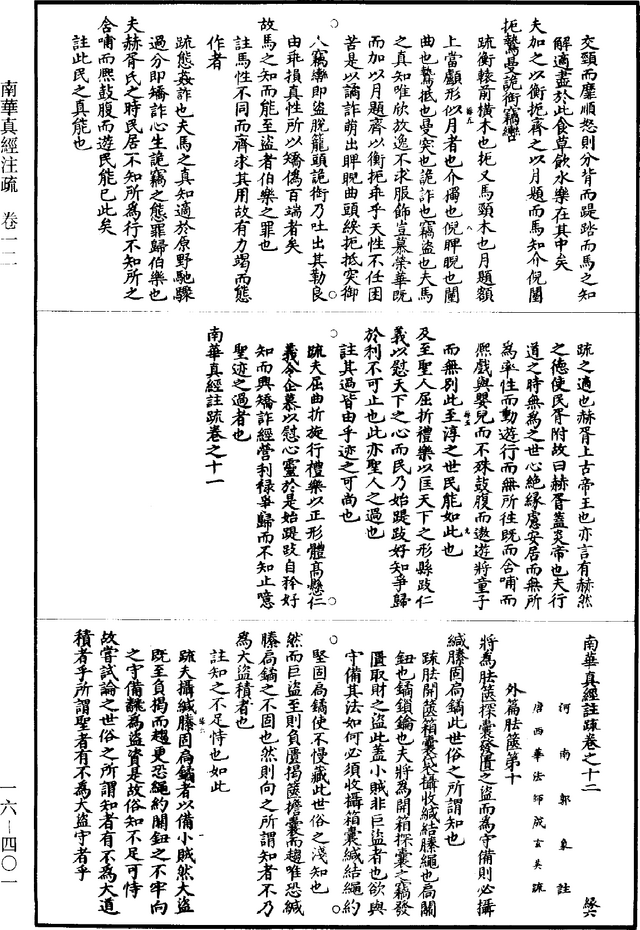 南華真經注疏 卷一二
一六—四〇一
交頸而靡順怒則分背而踶踏而馬之知
解適盡於此食草飲水樂在其中矣
夫加之以衡扼齊之以月題而馬知介倪闉
扼鷙曼詭銜竊轡
疏衡轅前橫木也扼叉馬頸木也月題額
上當顱形似月者也介獨也倪睥睨也闉
曲也鷙抵也曼突也詭詐也竊盜也夫馬
之真知唯欣放逸不求服飾豈慕榮華既
而加以月題齊以衡扼乖乎天性不任困
苦是以譎詐萌出睥睨曲頭緩扼抵突御
人竊轡即盜脫籠頭詭銜乃吐出其勒良
由乖損真性所以矯偽百端者矣
故馬之知而能至盜者伯樂之罪也
註馬性不同而齊求其用故有力竭而態
作者
疏態姦詐也夫馬之真知適於原野馳驟
過分即矯詐心生詭竊之態罪歸伯樂也
夫赫胥氏之時民居不知所為行不知所之
含哺而熙鼓腹而遊民能已此矣
註此民之真能也
疏之適也赫胥上古帝王也亦言有赫然
之德使民胥附故曰赫胥蓋炎帝也夫行
道之時無為之世心絕緣慮安居而無所
為率性而動遊行而無所往既而含哺而
熙戲與嬰兒而不殊鼓腹而遨遊將童子
而無別此至淳之世民能如此也
及至聖人屈折禮樂以匡天下之形縣跂仁
義以慰天下之心而民乃始踶跂好知爭歸
於利不可止也此亦聖人之過也
註其過皆由乎迹之可尚也
疏夫屈曲折旋行禮樂以正形體高懸仁
義令企慕以慰心靈於是始踶跂自矜好
知而興矯詐經營利祿爭歸而不知止噫
聖迹之過者也
南華真經註疏卷之十一
南華真經註疏卷之十二 緣六
河南郭象註
唐西華法師成玄英疏
外篇胠篋第十
將為胠篋探囊發匱之盜而為守備則必攝
緘縢固扃鐍此世俗之所謂知也
疏胠開篋箱囊袋攝收緘結縢繩也扃關
鈕也鐍鎖鑰也夫將為開箱探囊之竊發
匱取財之盜此蓋小賊非巨盜者也欲與
守備其法如何必須收攝箱囊緘結繩約
堅固扃鐍使不慢藏此世俗之淺知也
然而巨盜至則負匱揭篋擔囊而趨唯恐緘
縢扃鐍之不固也然則向之所謂知者不乃
為大盜積者也
註知之不足恃也如此
疏夫攝緘縢固扃鐍者以備小賊然大盜
既至負揭而趨更恐繩約關鈕之不牢向
之守備翻為盜資是故俗知不足可恃
故嘗試論之世俗之所謂知者有不為大盜
積者乎所謂聖者有不為大盜守者乎